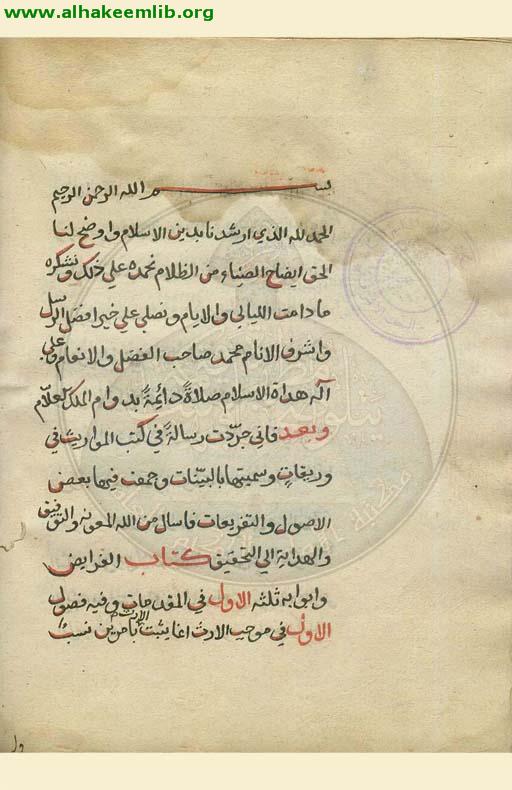 www.alhakeemlib.org
بسم الله الرحمن الرحيم
الحمد لله الذي ارشدنا بدين الاسلام واوضح لنا
الحق ايضاح الضياء من الظلام نحمده علي ذلك ونشكره
مادامت الليالي والايام ونصلي علي خير افضل الرسل
واشرف الانام محمد صاحب الفضل والانعام وعلي
آله هداة الاسلام صلاةً دائمةً بدوام الملك العلام
وبعد فاني جردت رسالةً في كتب المواريث في
وريقاتٍ وسميتها بالبينات وجمعت فيها بعض
الاصول والتفريعات فاسال من الله المعونه والتوفيق
والهداية الي التحقيق كتاب الفرايض
وابوابه ثلثه الاول في المقدمات وفيه فصول
الاول في موجب الارث انما يثبت الارث بامرين نسب